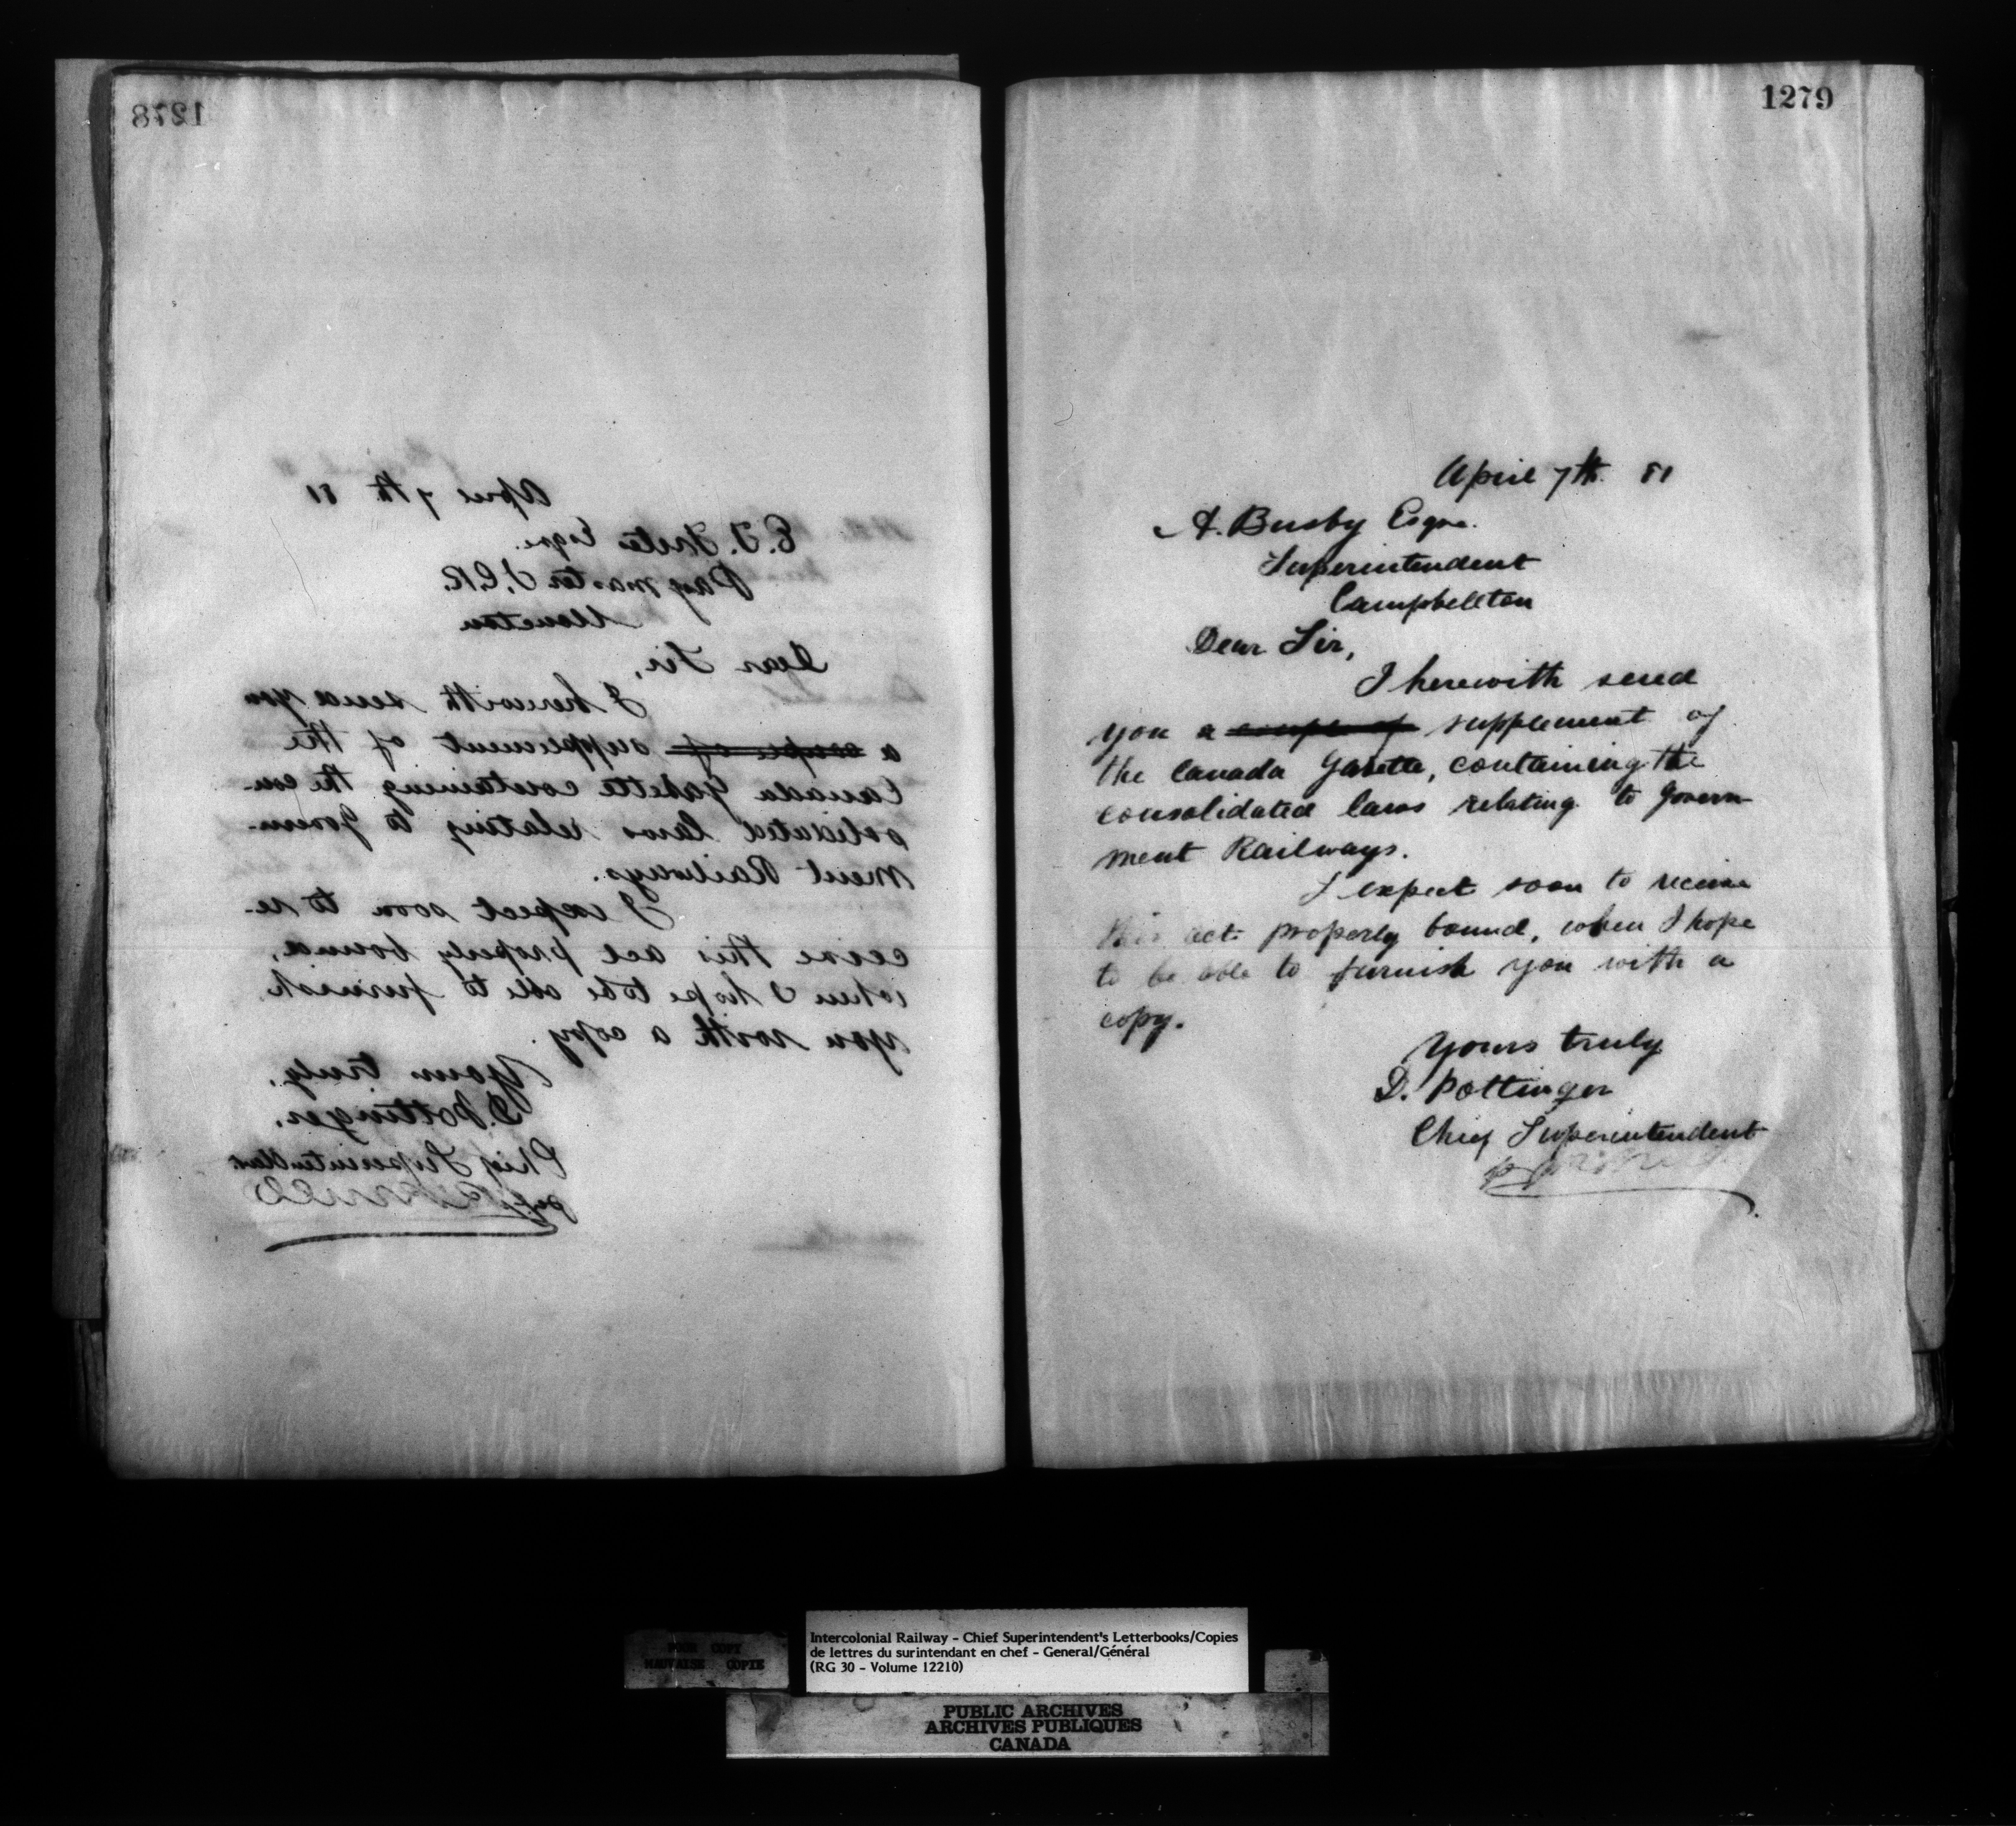 1278
April 7th 81
E. T. Esqre.
Paymaster I.C.R.
Moncton
Dear Sir,
I herewith send you
a couple of supplement of the
Canada Gazette containing the con-
solidated laws relating to Govern-
ment Railways.
I expect soon to re-
ceive this act properly bound,
when I hope to be able to furnish
you with a copy.
Yours truly,
D. Pottinger.
Chief Superintendent
per
1279
April 7th. 81
A. Busby Esqre.
Superintendent
Campbellton
Dear Sir,
I herewith send
you a couple of supplement of
the Canada Gazette, containing the
consolidated laws relating to Govern-
ment Railways.
I expect soon to receive
this act properly bound, when I hope
to be able to furnish you with a
copy.
Yours truly
D. Pottinger
Chief Superintendent
POOR COPY
MAUVAISE COPIE
Intercolonial Railway - Chief Superintendent's Letterbooks/Copies
de lettres du surintendant en chef - General/Général
(RG 30 - Volume 12210)
PUBLIC ARCHIVES
ARCHIVES PUBLIQUES
CANADA